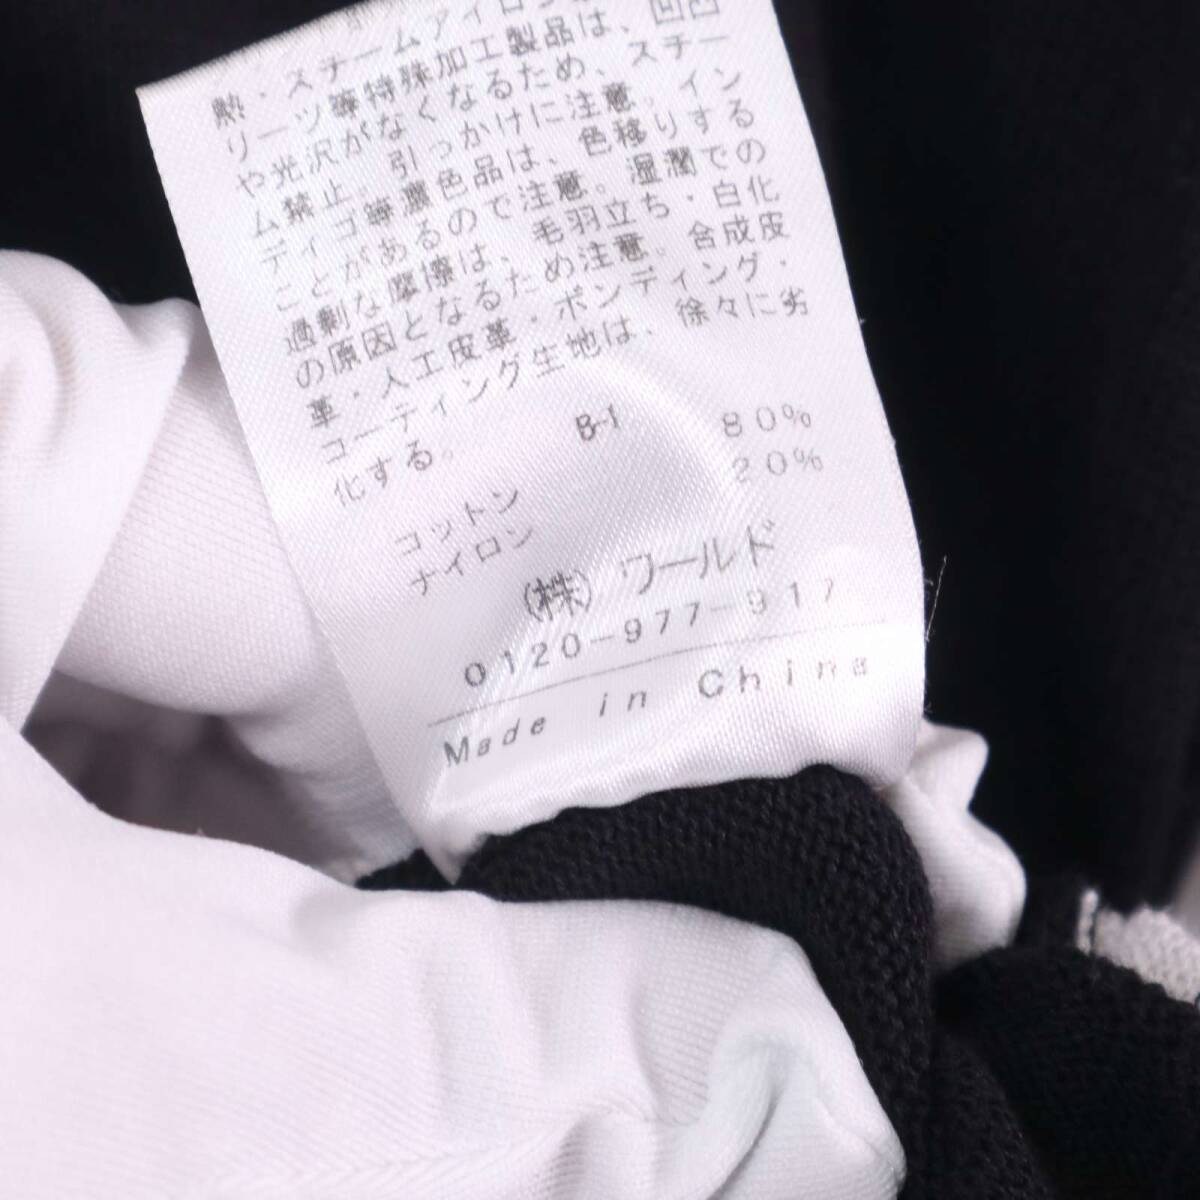 熱・スチームアイロン
リーツ等特殊加工製品は、凹凸
や光沢がなくなるため、スチー
ム禁止。引っかけに注意。イン
ディゴ等濃色品は、色移りする
ことがあるので注意。湿潤での
過剰な摩擦は、毛羽立ち・白化
の原因となるため注意。合成皮
革・人工皮革・ボンディング・
コーティング生地は、徐々に劣
化する。
B-1
コットン 80%
ナイロン 20%
(株)ワールド
0120-977-917
Made in China